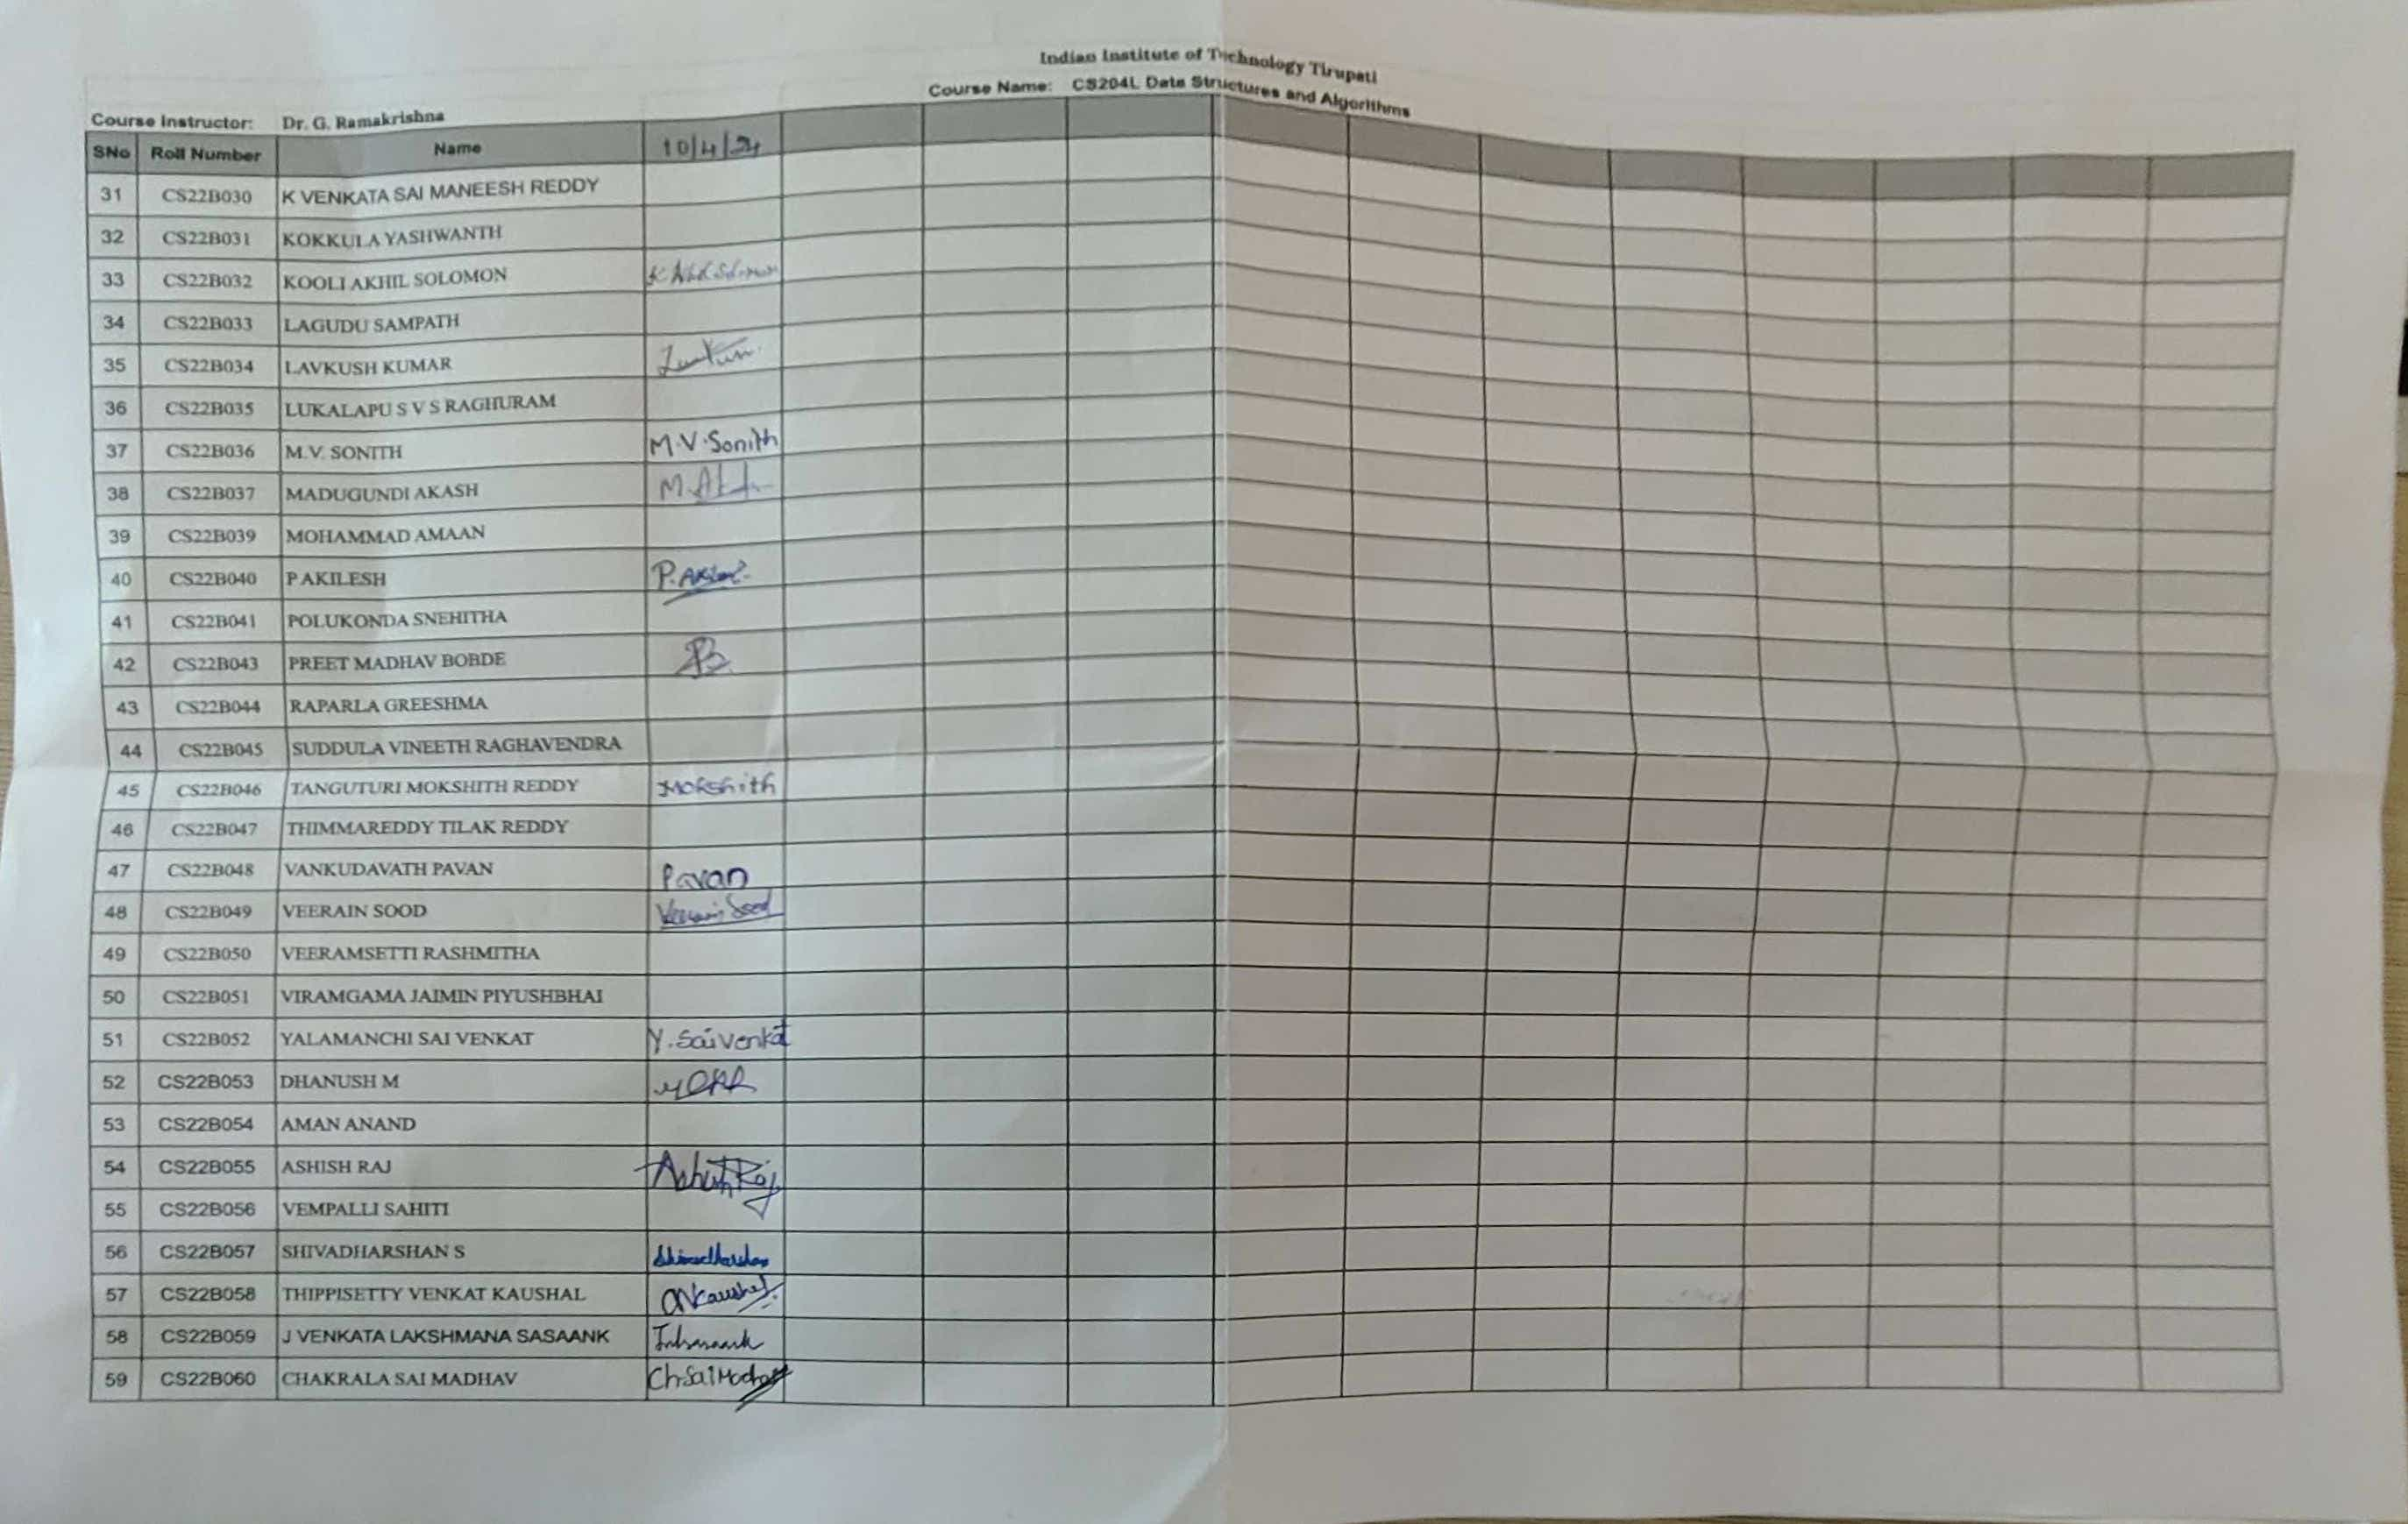 Indian Institute of Technology Tirupati
Course Name: CS204L Data Structures and Algorithms
Course Instructor: Dr. G. Ramakrishna
SNo Roll Number Name 10/4/24
31 CS22B030 K VENKATA SAI MANEESH REDDY
32 CS22B031 KOKKULA YASHWANTH
33 CS22B032 KOOLI AKHIL SOLOMON
34 CS22B033 LAGUDU SAMPATH
35 CS22B034 LAVKUSH KUMAR
36 CS22B035 LUKALAPU S V S RAGHURAM
37 CS22B036 M.V. SONITH M.V.Sonith
38 CS22B037 MADUGUNDI AKASH
39 CS22B039 MOHAMMAD AMAAN
40 CS22B040 P AKILESH
41 CS22B041 POLUKONDA SNEHITHA
42 CS22B043 PREET MADHAV BOBDE
43 CS22B044 RAPARLA GREESHMA
44 CS22B045 SUDDULA VINEETH RAGHAVENDRA
45 CS22B046 TANGUTURI MOKSHITH REDDY Mokshith
46 CS22B047 THIMMAREDDY TILAK REDDY
47 CS22B048 VANKUDAVATH PAVAN Pavan
48 CS22B049 VEERAIN SOOD
49 CS22B050 VEERAMSETTI RASHMITHA
50 CS22B051 VIRAMGAMA JAIMIN PIYUSHBHAI
51 CS22B052 YALAMANCHI SAI VENKAT Y.Sai Venkat
52 CS22B053 DHANUSH M
53 CS22B054 AMAN ANAND
54 CS22B055 ASHISH RAJ Ashish Raj
55 CS22B056 VEMPALLI SAHITI
56 CS22B057 SHIVADHARSHAN S Shivadharshan
57 CS22B058 THIPPISETTY VENKAT KAUSHAL
58 CS22B059 J VENKATA LAKSHMANA SASAANK
59 CS22B060 CHAKRALA SAI MADHAV Ch Sai Madhav